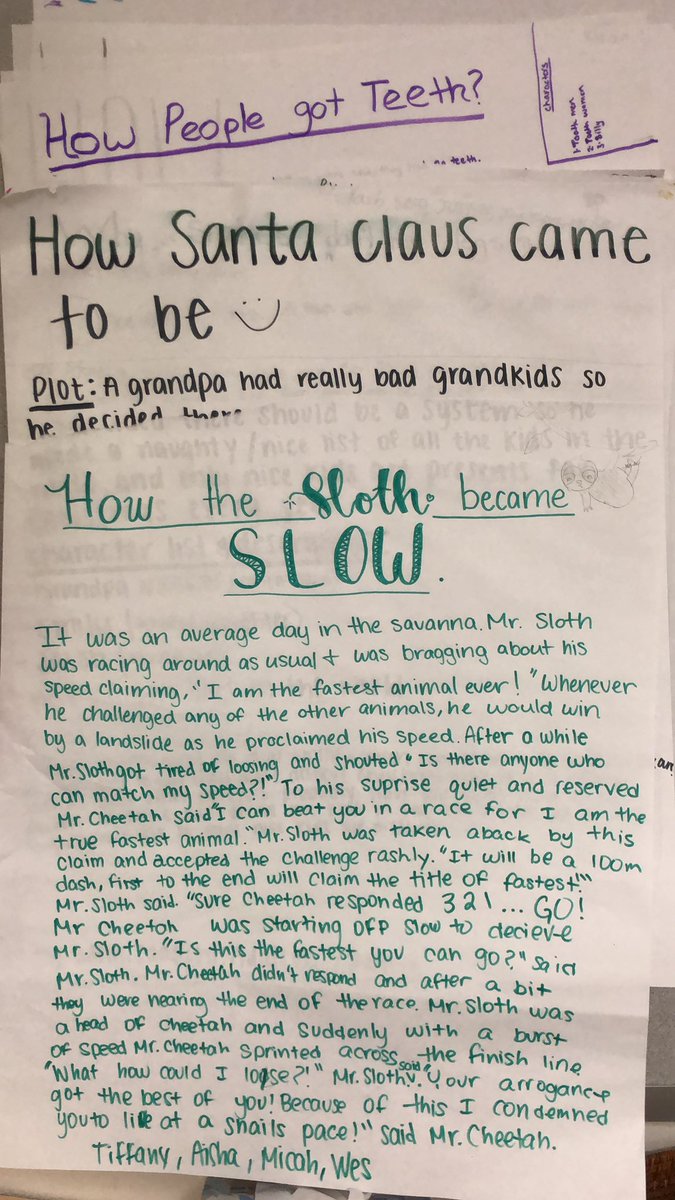 How People got Teeth?
characters
1. Tooth men
2. Tooth women
3. Billy
teeth.
How Santa claus came
to be
Plot: A grandpa had really bad grandkids so
he decided there
should be a system so he
made a naughty/nice list of all the kids in the
How the Sloth became
SLOW.
It was an average day in the savanna. Mr. Sloth
was racing around as usual + was bragging about his
speed claiming, "I am the fastest animal ever! "Whenever
he challenged any of the other animals, he would win
by a landslide as he proclaimed his speed. After a while
Mr. Sloth got tired of loosing and shouted "Is there anyone who
can match my speed?!" To his suprise quiet and reserved
Mr. Cheetah said "I can beat you in a race for I am the
true fastest animal." Mr. Sloth was taken aback by this
claim and accepted the challenge rashly. "It will be a 100m
dash, first to the end will claim the title of fastest!"
Mr. Sloth said. "Sure Cheetah responded 3 2 1 ... GO!
Mr Cheetah was starting OFF slow to decieve
Mr. Sloth. "Is this the fastest you can go?" said
Mr. Sloth. Mr. Cheetah didn't respond and after a bit
they were nearing the end of the race. Mr. Sloth was
a head of cheetah and suddenly with a burst
of speed Mr. Cheetah sprinted across the finish line
"What how could I loose?!" Mr. Sloth said. "Your arrogance
got the best of you! Because of this I condemned
you to life at a snails pace!" said Mr. Cheetah.
Tiffany, Aicha, Micah, Wes